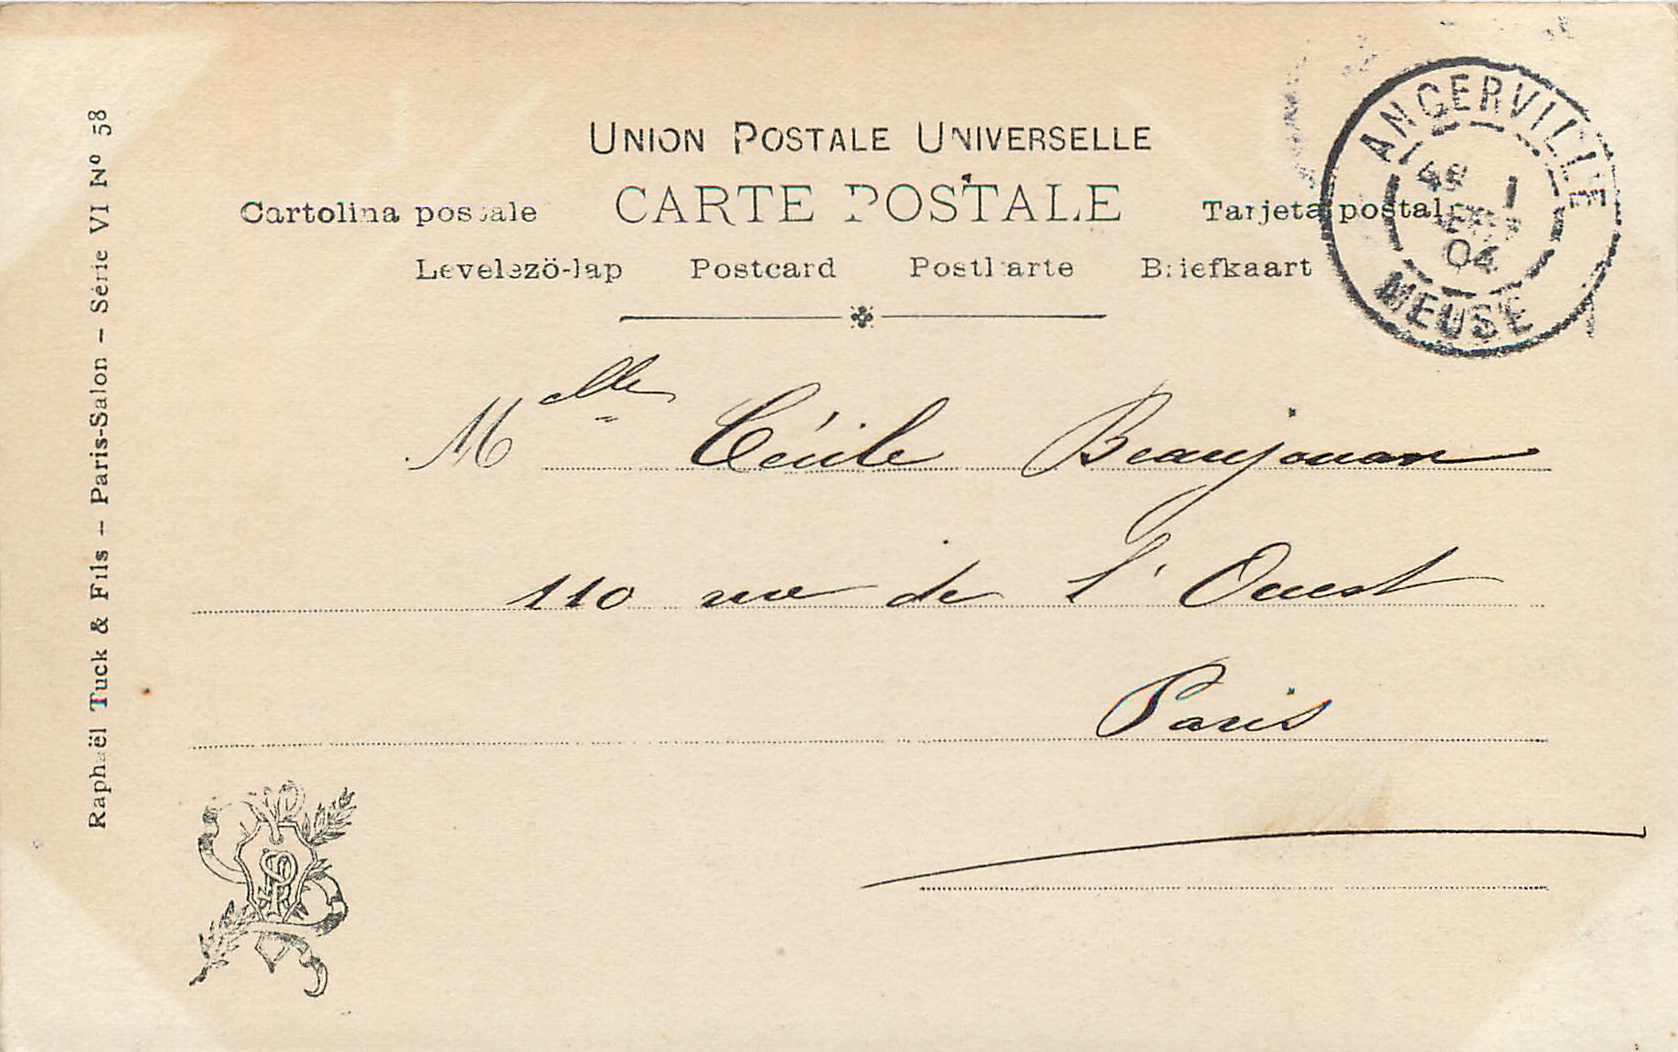 UNION POSTALE UNIVERSELLE
Cartolina postale CARTE POSTALE Tarjeta postal
Levelezö-lap Postcard Postkarte Briefkaart
ANGERVILLE
1
04
MEUSE
Mlle Cécile Beaujouan
110 rue de l'Ouest
Paris
Raphaël Tuck & Fils – Paris-Salon – Série VI Nº 58